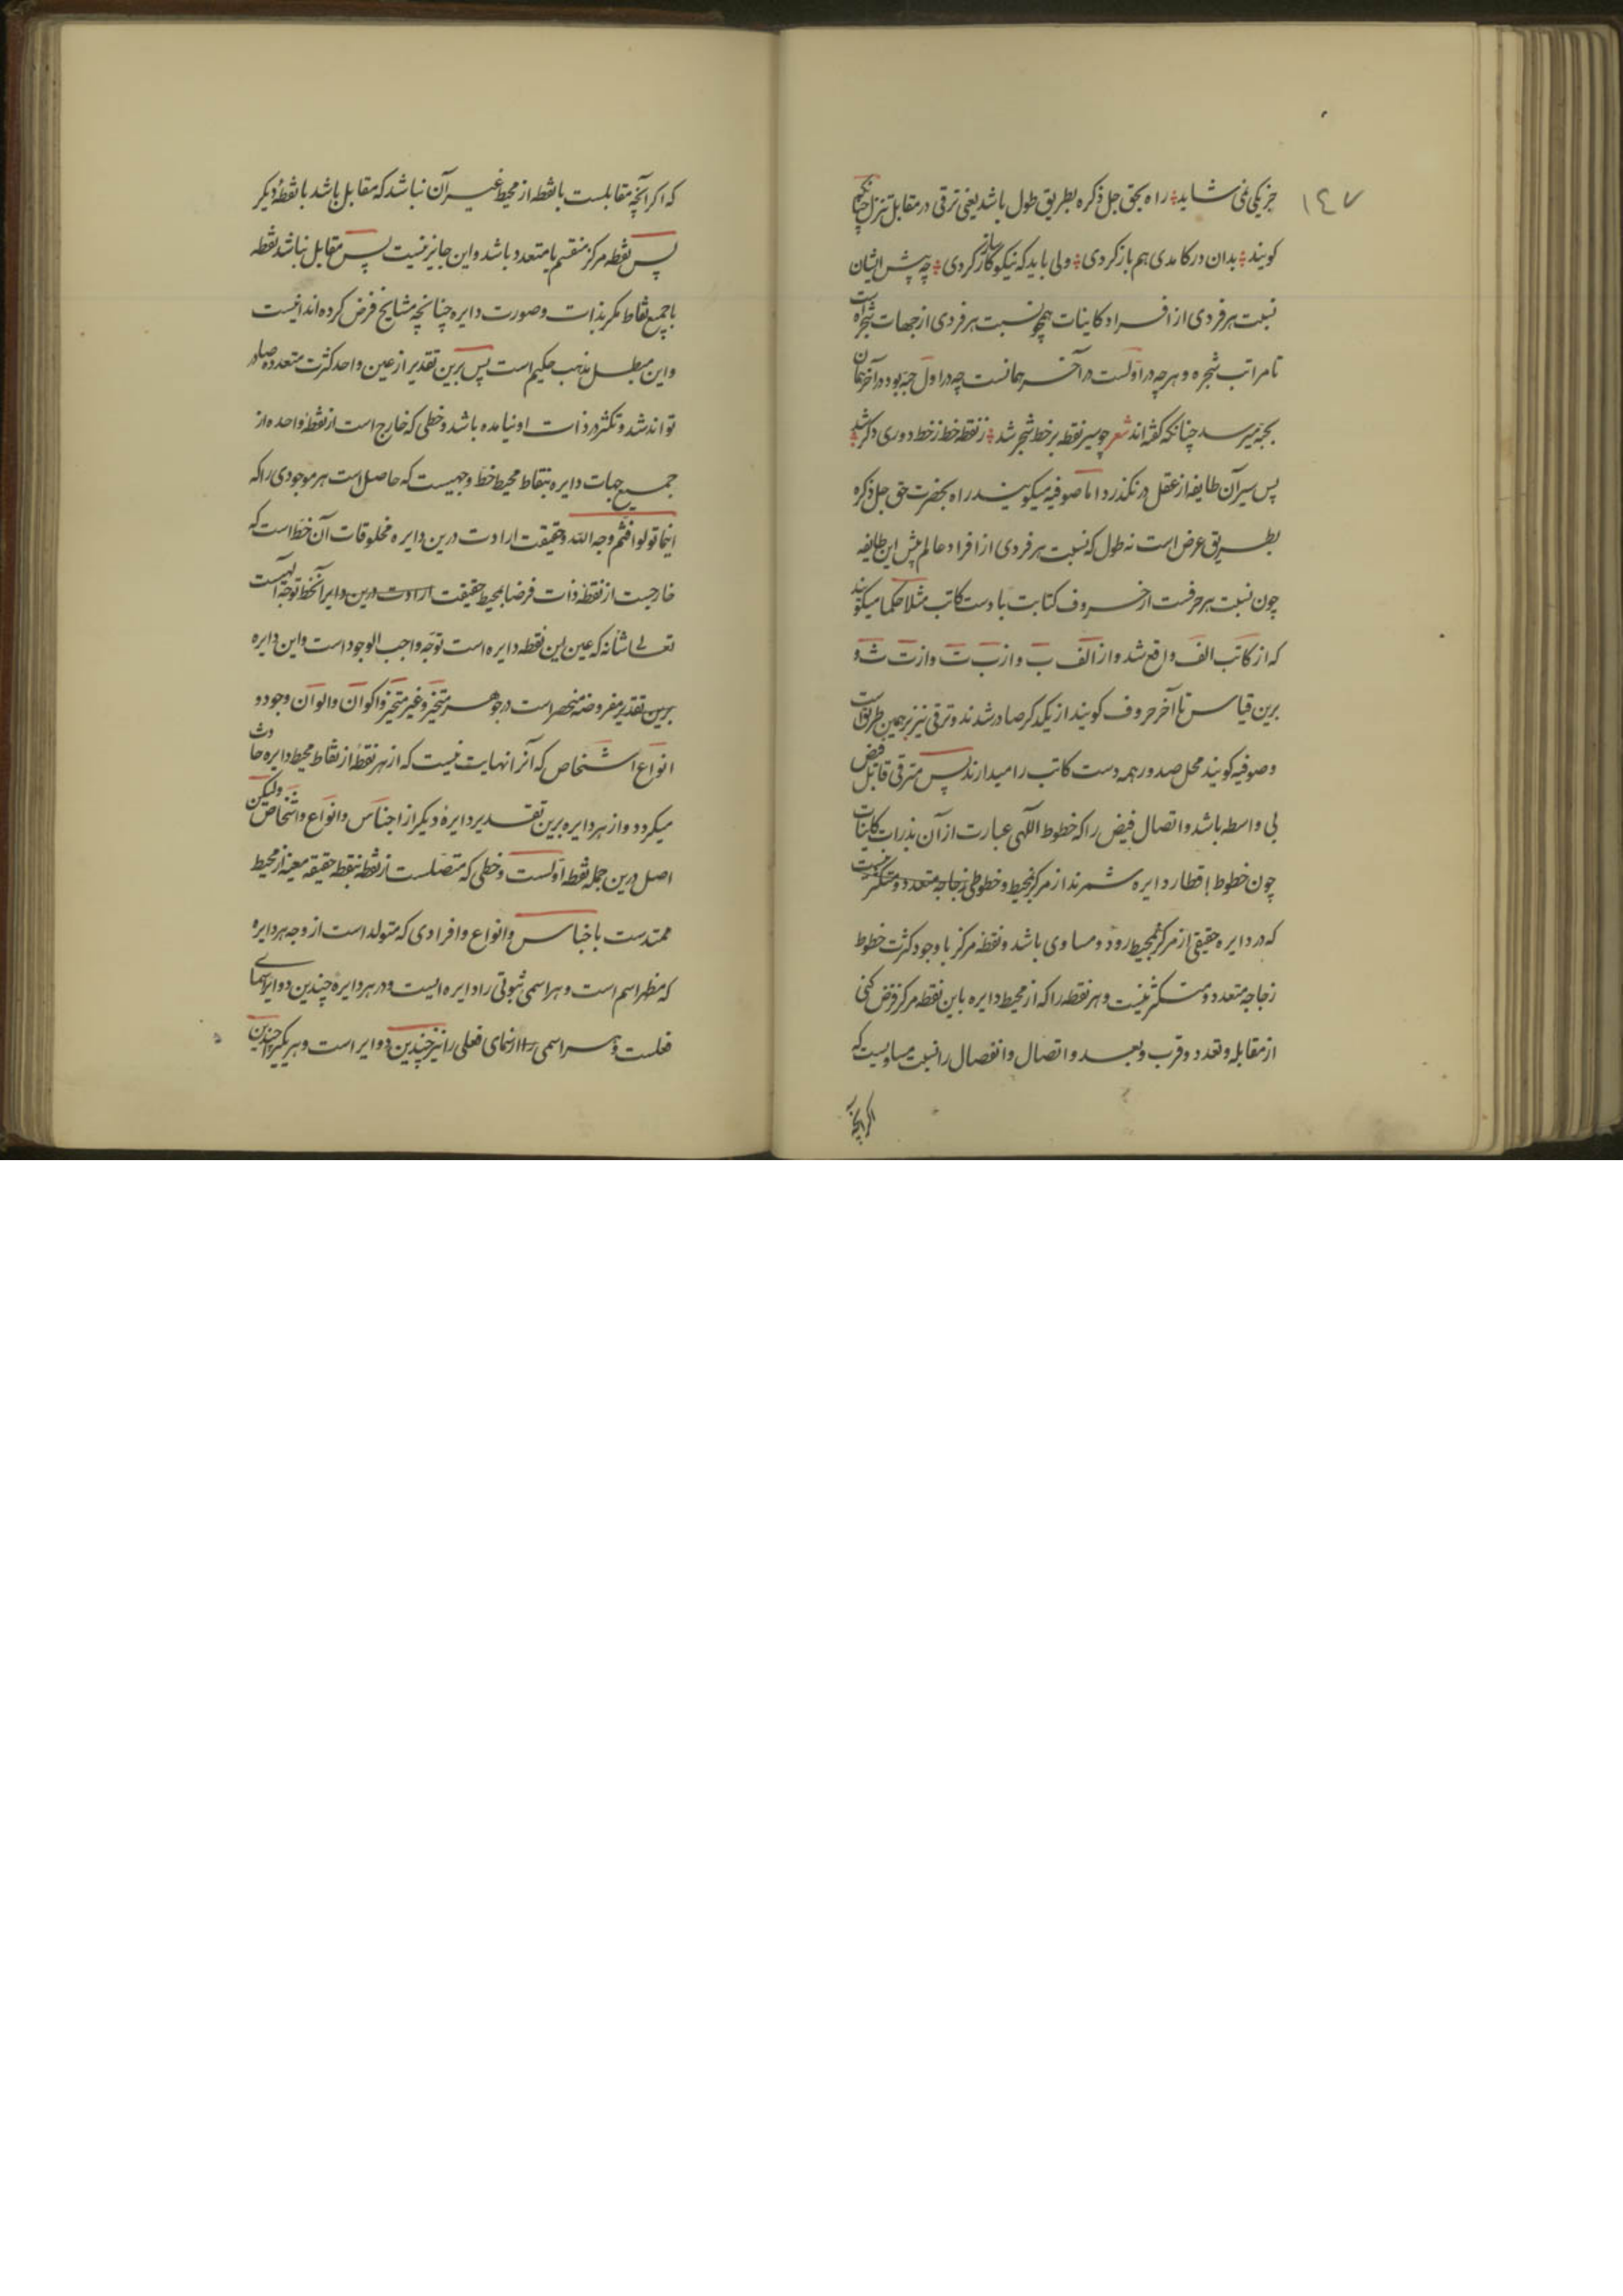 ١٤٧
جز یکی نمی شاید راه بحق جل ذکره بطریق طول باشد یعنی ترقی در مقابل تنزل چنانکه
کویند بدان در کامدی هم بازکردی ولی باید که نیکو کار کردی چه پیش ایشان
نسبت هر فردی از افراد کاینات همچو نسبت هر فردی از جهات شجره است
تا مراتب شجره و هرچه در اولست در آخر همانست چه در اول حبه بود در آخر همان
بحبه میرسد چنانکه کفته اند شعر چو سیر نقطه بر خط شجر شد ز نقطه خط ز خط دوری دکر شد
پس سیر آن طایفه از عقل در نکذرد اما صوفیه میکویند راه بحضرت حق جل ذکره
بطریق عرض است نه طول که نسبت هر فردی از افراد عالم پیش این طایفه
چون نسبت هر حرفست از حروف کتابت با دست کاتب مثلا حکما میکویند
که از کاتب الف واقع شد و از الف ب و از ب ت و از ت ث و
برین قیاس تا آخر حروف کویند از یکدکر صادر شدند و ترقی نیز برهمین طریق است
و صوفیه کویند محل صدور همه دست کاتب را میدارند پس مترقی قابل فیض
بی واسطه باشد و اتصال فیض را که خطوط اللهی عبارت از آن بذرات کاینات
چون خطوط اقطار دایره شمرند از مرکز بمحیط و خطوطی زجاجه متعدد و متکثر نیست
که در دایره حقیقی از مرکز بمحیط رود و مساوی باشد و نقطه مرکز با وجود کثرت خطوط
زجاجه متعدد و متکثر نیست و هر نقطه را که از محیط دایره باین نقطه مرکز فرض کنی
از مقابله و تعدد و قرب و بعد و اتصال و انفصال را نسبت مساویست که
اکر آنچه
که اکر آنچه مقابلست با نقطه از محیط غیر آن نباشد که مقابل باشد با نقطه دیکر
پس نقطه مرکز منقسم یا متعدد باشد و این جایز نیست پس مقابل نباشد نقطه
با جمیع نقاط مکر بذات و صورت دایره چنانچه مشایخ فرض کرده اند اینست
و این مبطل مذهب حکیم است پس برین تقدیر از عین واحد کثرت متعدده صادر
تواند شد و تکثر در ذات او نیامده باشد و خطی که خارج است از نقطه واحده از
جمیع جهات دایره بنقاط محیط خط وجهیست که حاصل است هر موجودی را که
اینما تولوا فثم وجه الله و حقیقت ارادت درین دایره مخلوقات آن خط است که
خارجست از نقطه ذات فرضا بمحیط حقیقت ارادت درین دایر آنخط توجه الهیست
تعالی شأنه که عین این نقطه دایره است توجه واجب الوجود است و این دایره
برین تقدیر مفروضه منحصر است در جوهر متحیز و غیر متحیز و اکوان و الوان وجود و
انواع اشخاص که آنرا نهایت نیست که از هر نقطه از نقاط محیط دایره حادث
میکردد و از هر دایره برین تقدیر دایرهٔ دیکر از اجناس و انواع و اشخاص ولیکن
اصل درین جمله نقطه اولست و خطی که متصلست از نقطه بنقطه حقیقه معینه از محیط
ممتدست باجناس و انواع و افرادی که متولد است از وجه هر دایره
که مظهر اسم است و هر اسمی ثبوتی را دایره ایست و در هر دایره چندین دوایر اسمای
فعلست و هر اسمی را از اسمای فعلی را نیز چندین دوایر است و هر یکی را چندین